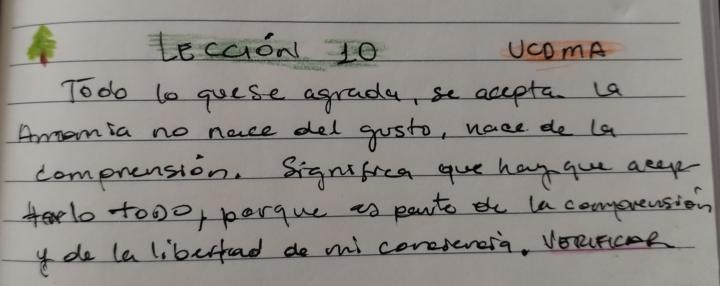 LECCIÓN 10 UCDMA
Todo lo que se agrada, se acepta. La
Armonia no nace del gusto, nace de la
comprensión. Significa que hay que acep
tarlo todo, porque es parte de la comprensión
y de la libertad de mi conciencia. VERIFICAR